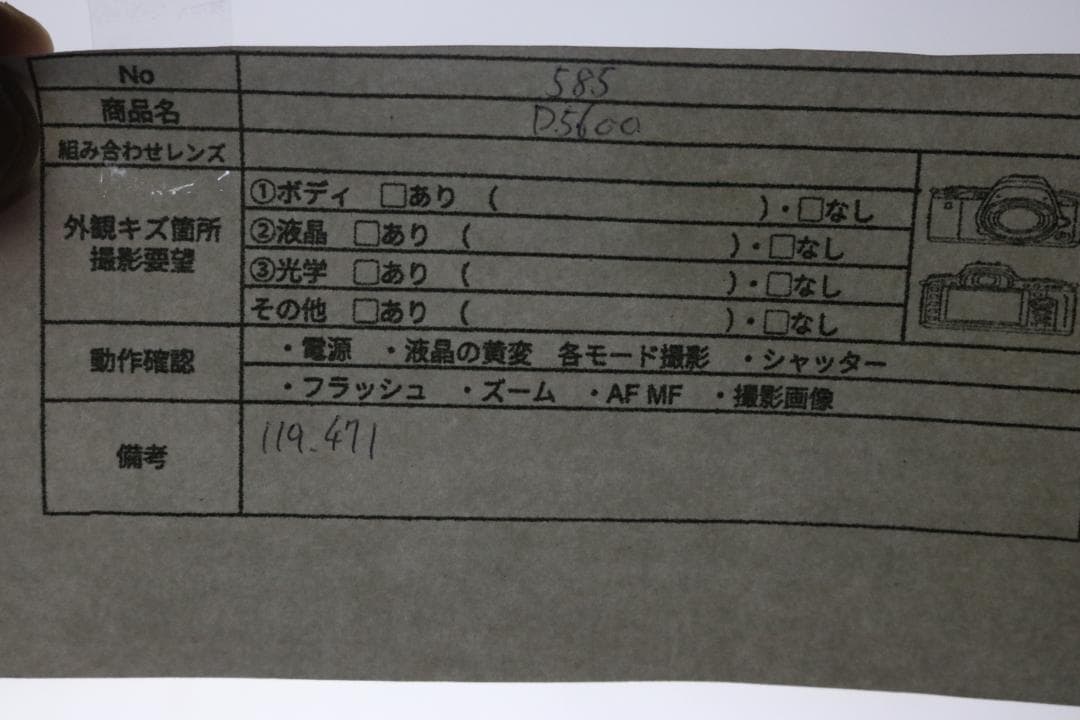 No 585
商品名 D5600
組み合わせレンズ
外観キズ箇所
撮影要望
①ボディ □あり ( )・□なし
②液晶 □あり ( )・□なし
③光学 □あり ( )・□なし
その他 □あり ( )・□なし
動作確認
・電源 ・液晶の黄変 各モード撮影 ・シャッター
・フラッシュ ・ズーム ・AF MF ・撮影画像
備考 119.471